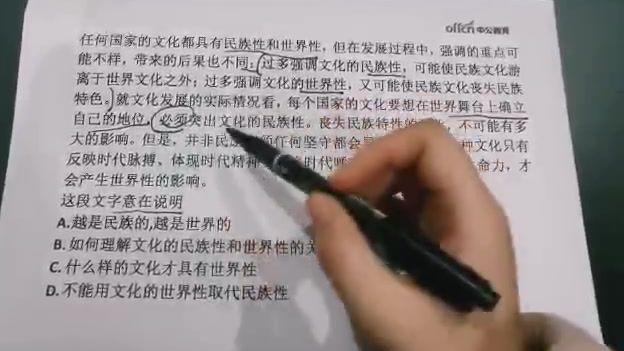 offcn中公教育
任何国家的文化都具有民族性和世界性，但在发展过程中，强调的重点可
能不样，带来的后果也不同：过多强调文化的民族性，可能使民族文化游
离于世界文化之外；过多强调文化的世界性，又可能使民族文化丧失民族
特色。就文化发展的实际情况看，每个国家的文化要想在世界舞台上确立
自己的地位，必须突出文化的民族性。丧失民族特性的，不可能有多
大的影响。但是，并非民任何坚守都会种文化只有
反映时代脉搏、体现时代精神时代命力，才
会产生世界性的影响。
这段文字意在说明
A.越是民族的,越是世界的
B.如何理解文化的民族性和世界性的
C.什么样的文化才具有世界性
D.不能用文化的世界性取代民族性